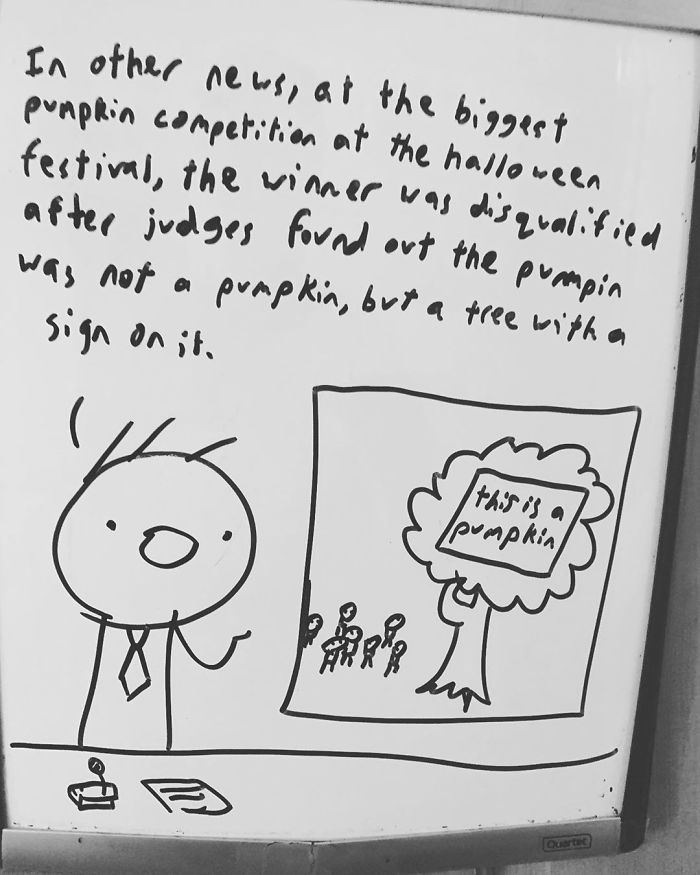 In other news, at the biggest
pumpkin competition at the halloween
festival, the winner was disqualified
after judges found out the pumpin
was not a pumpkin, but a tree with a
sign on it.
this is a
pumpkin
Quartet